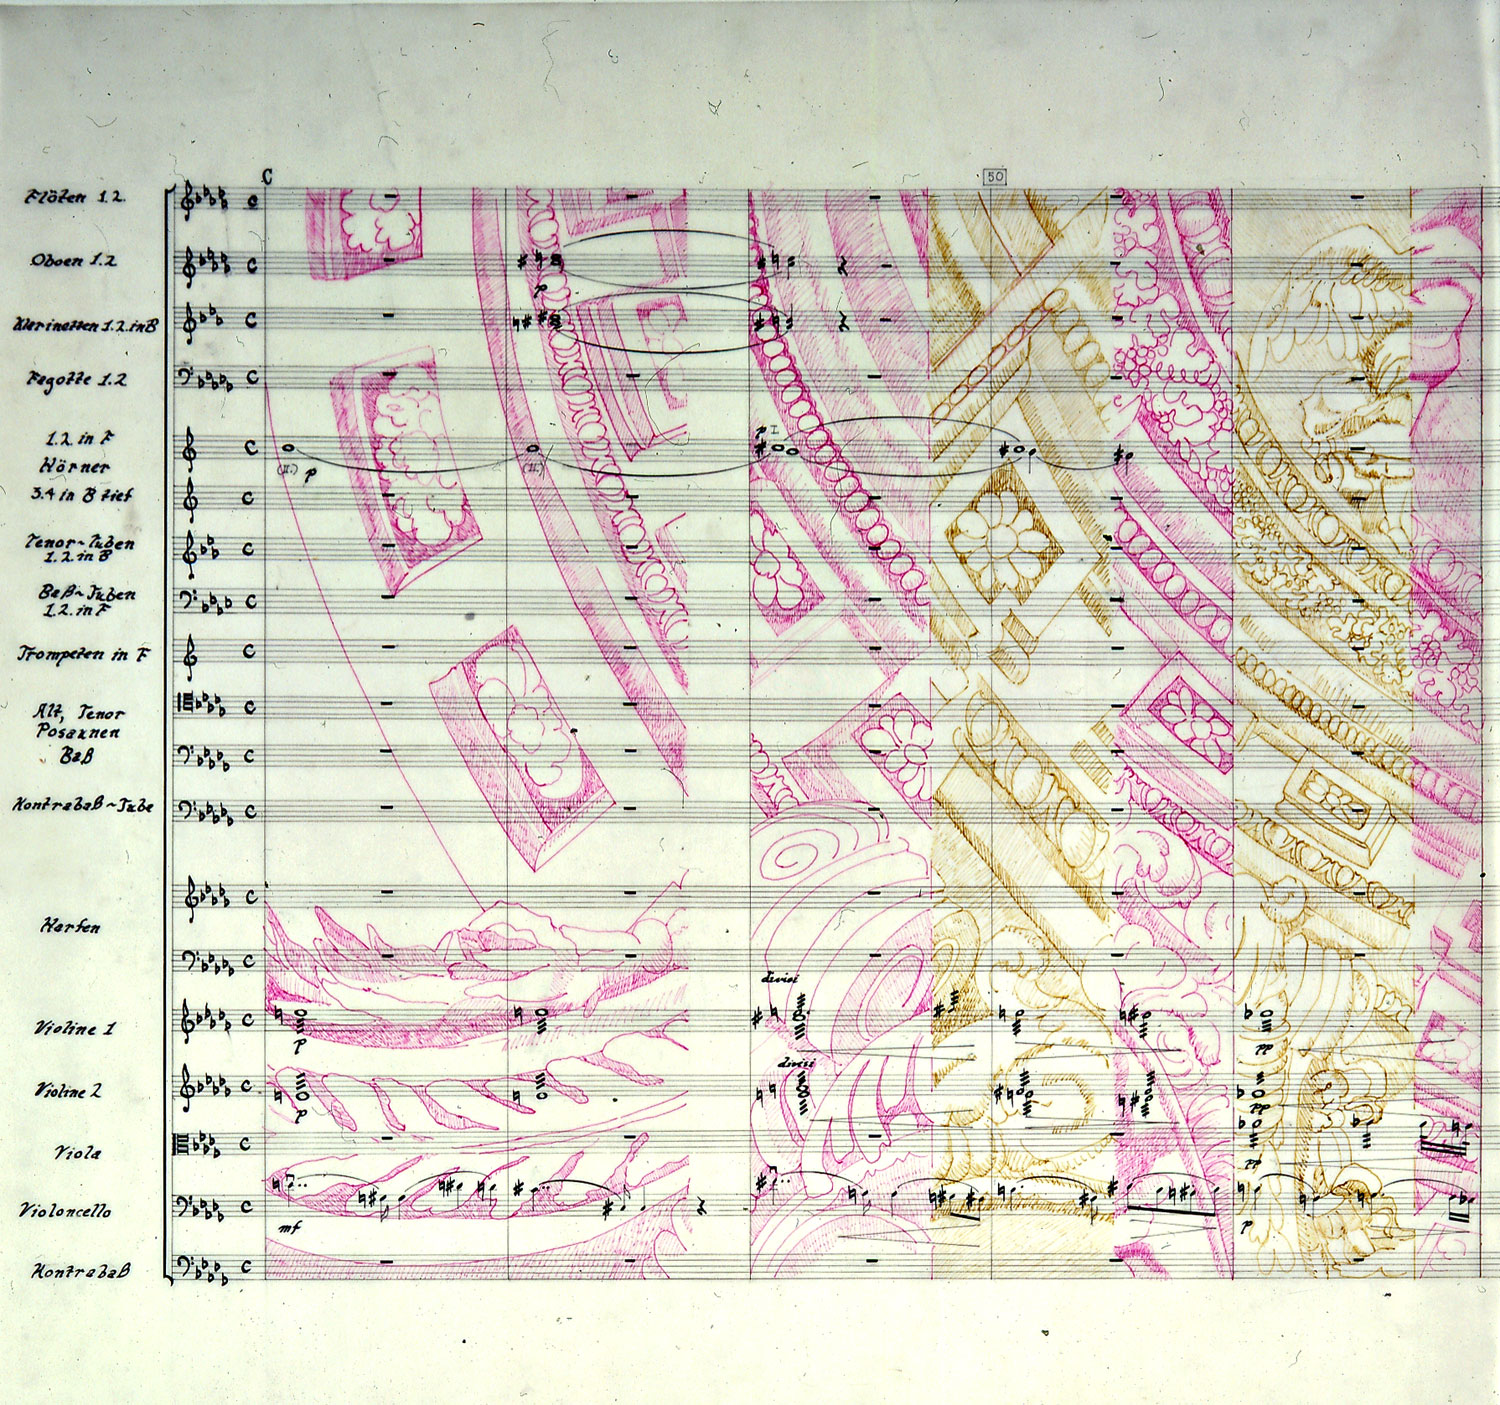 C
50
Flöten 1.2.
Oboen 1.2
p
Klarinetten 1.2. in B
Fagotte 1.2
1.2. in F
Hörner
p I
(II.) p
(II.)
3.4 in B tief
Tenor~Tuben
1.2. in B
Baß~Tuben
1.2. in F
Trompeten in F
Alt, Tenor
Posaunen
Baß
Kontrabaß~Tube
Harfen
divisi
Violine 1
p
pp
divisi
Violine 2
p
pp
Viola
pp
Violoncello
mf
p
Kontrabaß